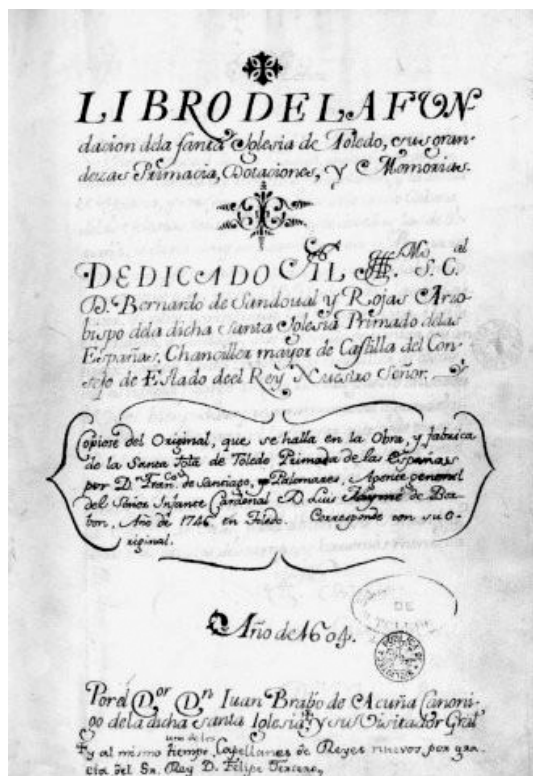 LIBRO DE LA FUN
dacion dela santa Iglesia de Toledo, sus gran-
dezas Primacia, Dotaciones, y Memorias.
DEDICADO AL Mo al
S. C.
D. Bernardo de Sandoual y Rojas Arzo
bispo dela dicha santa Iglesia Primado delas
Españas, Chanciller mayor de Castilla del Con
sejo de Estado deel Rey Nuestro señor.
Copiose del Original, que se halla en la Obra, y fabrica
de la Santa Igla de Toledo Primada de las Españas
por D. Franco de Santiago, y Palomares, Agente general
del Señor Infante Cardenal D. Luis Jayme de Bor
bon, Año de 1746 en Toledo. Corresponde con su O-
riginal.
Año de 1604.
DE
Por el Dor Dn Iuan Brabo de Acuña Canoni-
go dela dicha santa Iglesia y su Visitador Gral
uno de los
y al mismo tiempo Capellanes de Reyes nuevos por gra
cia del Sr. Rey D. Felipe Tercero,